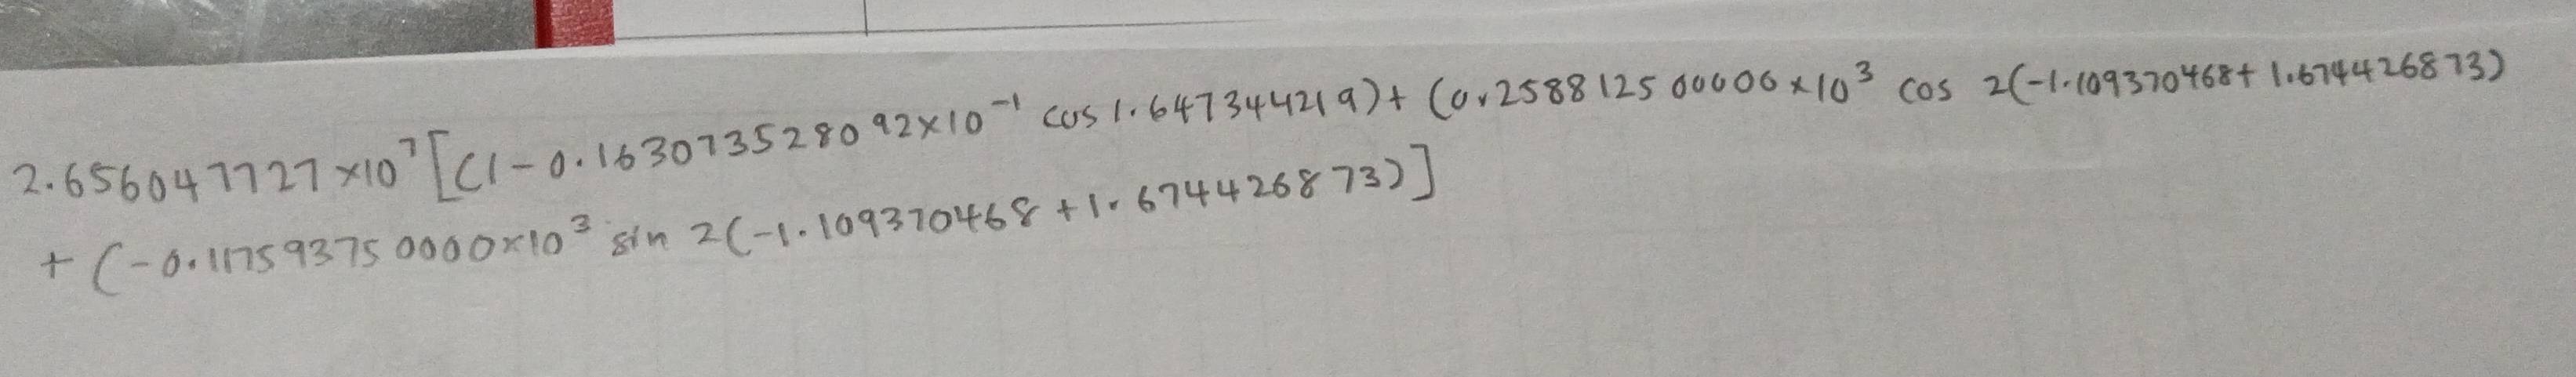 2.656047727×10⁷[(1-0.163073528092×10⁻¹ cos 1.647344219)+(0.258812500000×10³ cos 2(-1.109370468+1.674426873)
+(-0.117593750000×10³ sin 2(-1.109370468+1.674426873)]